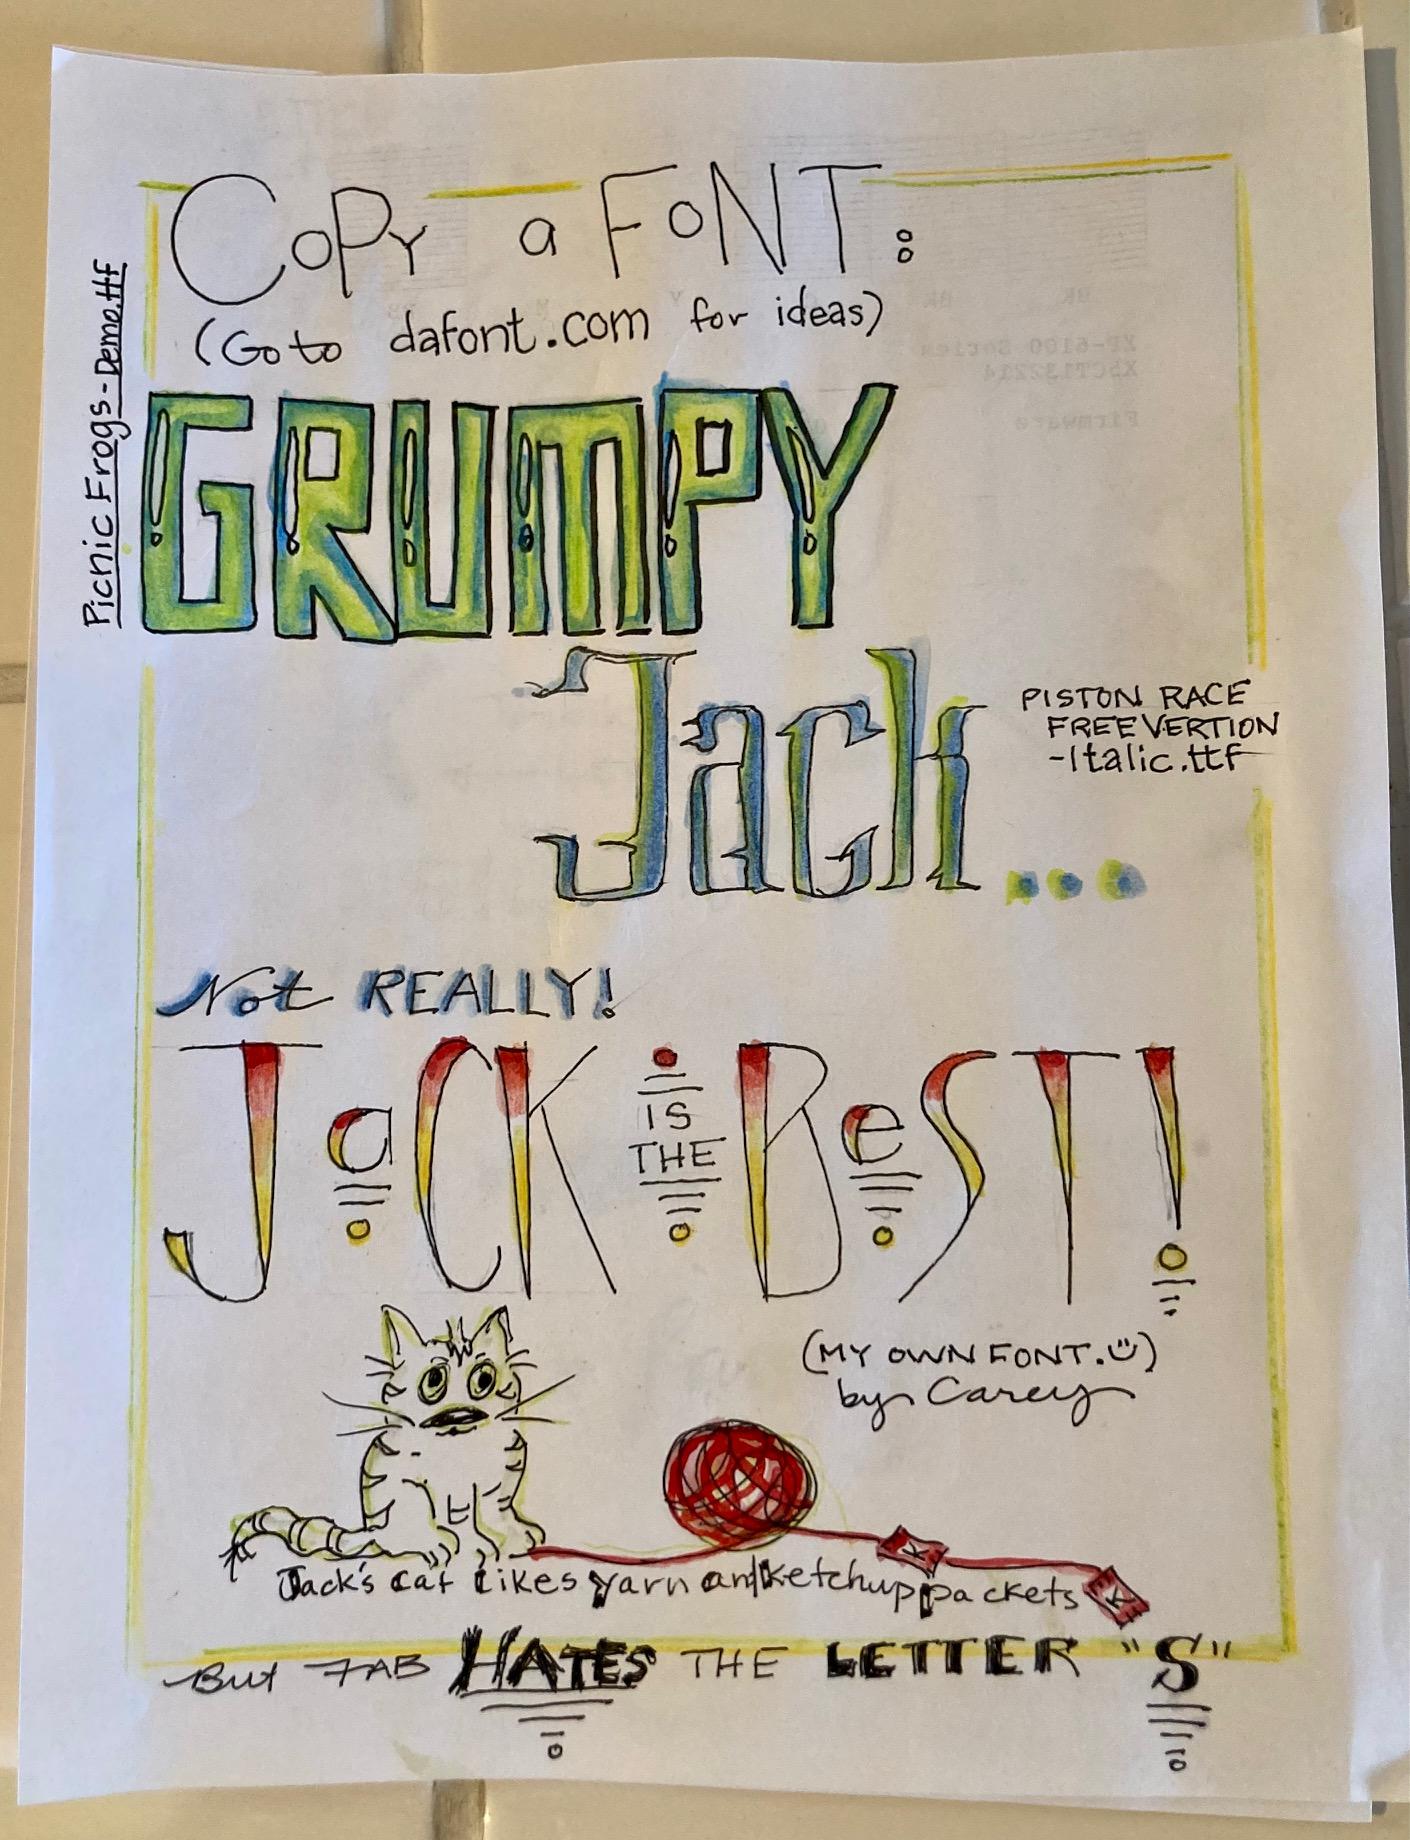 CoPy a FoNT:
(Go to dafont.com for ideas)
Picnic Frogs-Demo.ttf
GRUMPY
Jack...
PISTON RACE
FREE VERTION
-Italic.ttf
Not REALLY!
JaCK IS THE BeST!
(MY OWN FONT.)
by Carey
Jack's cat likes yarn and ketchup packets
K
K
But FAB HATES THE LETTER "S"
XP-6100 Series
X5CT132214
Firmware